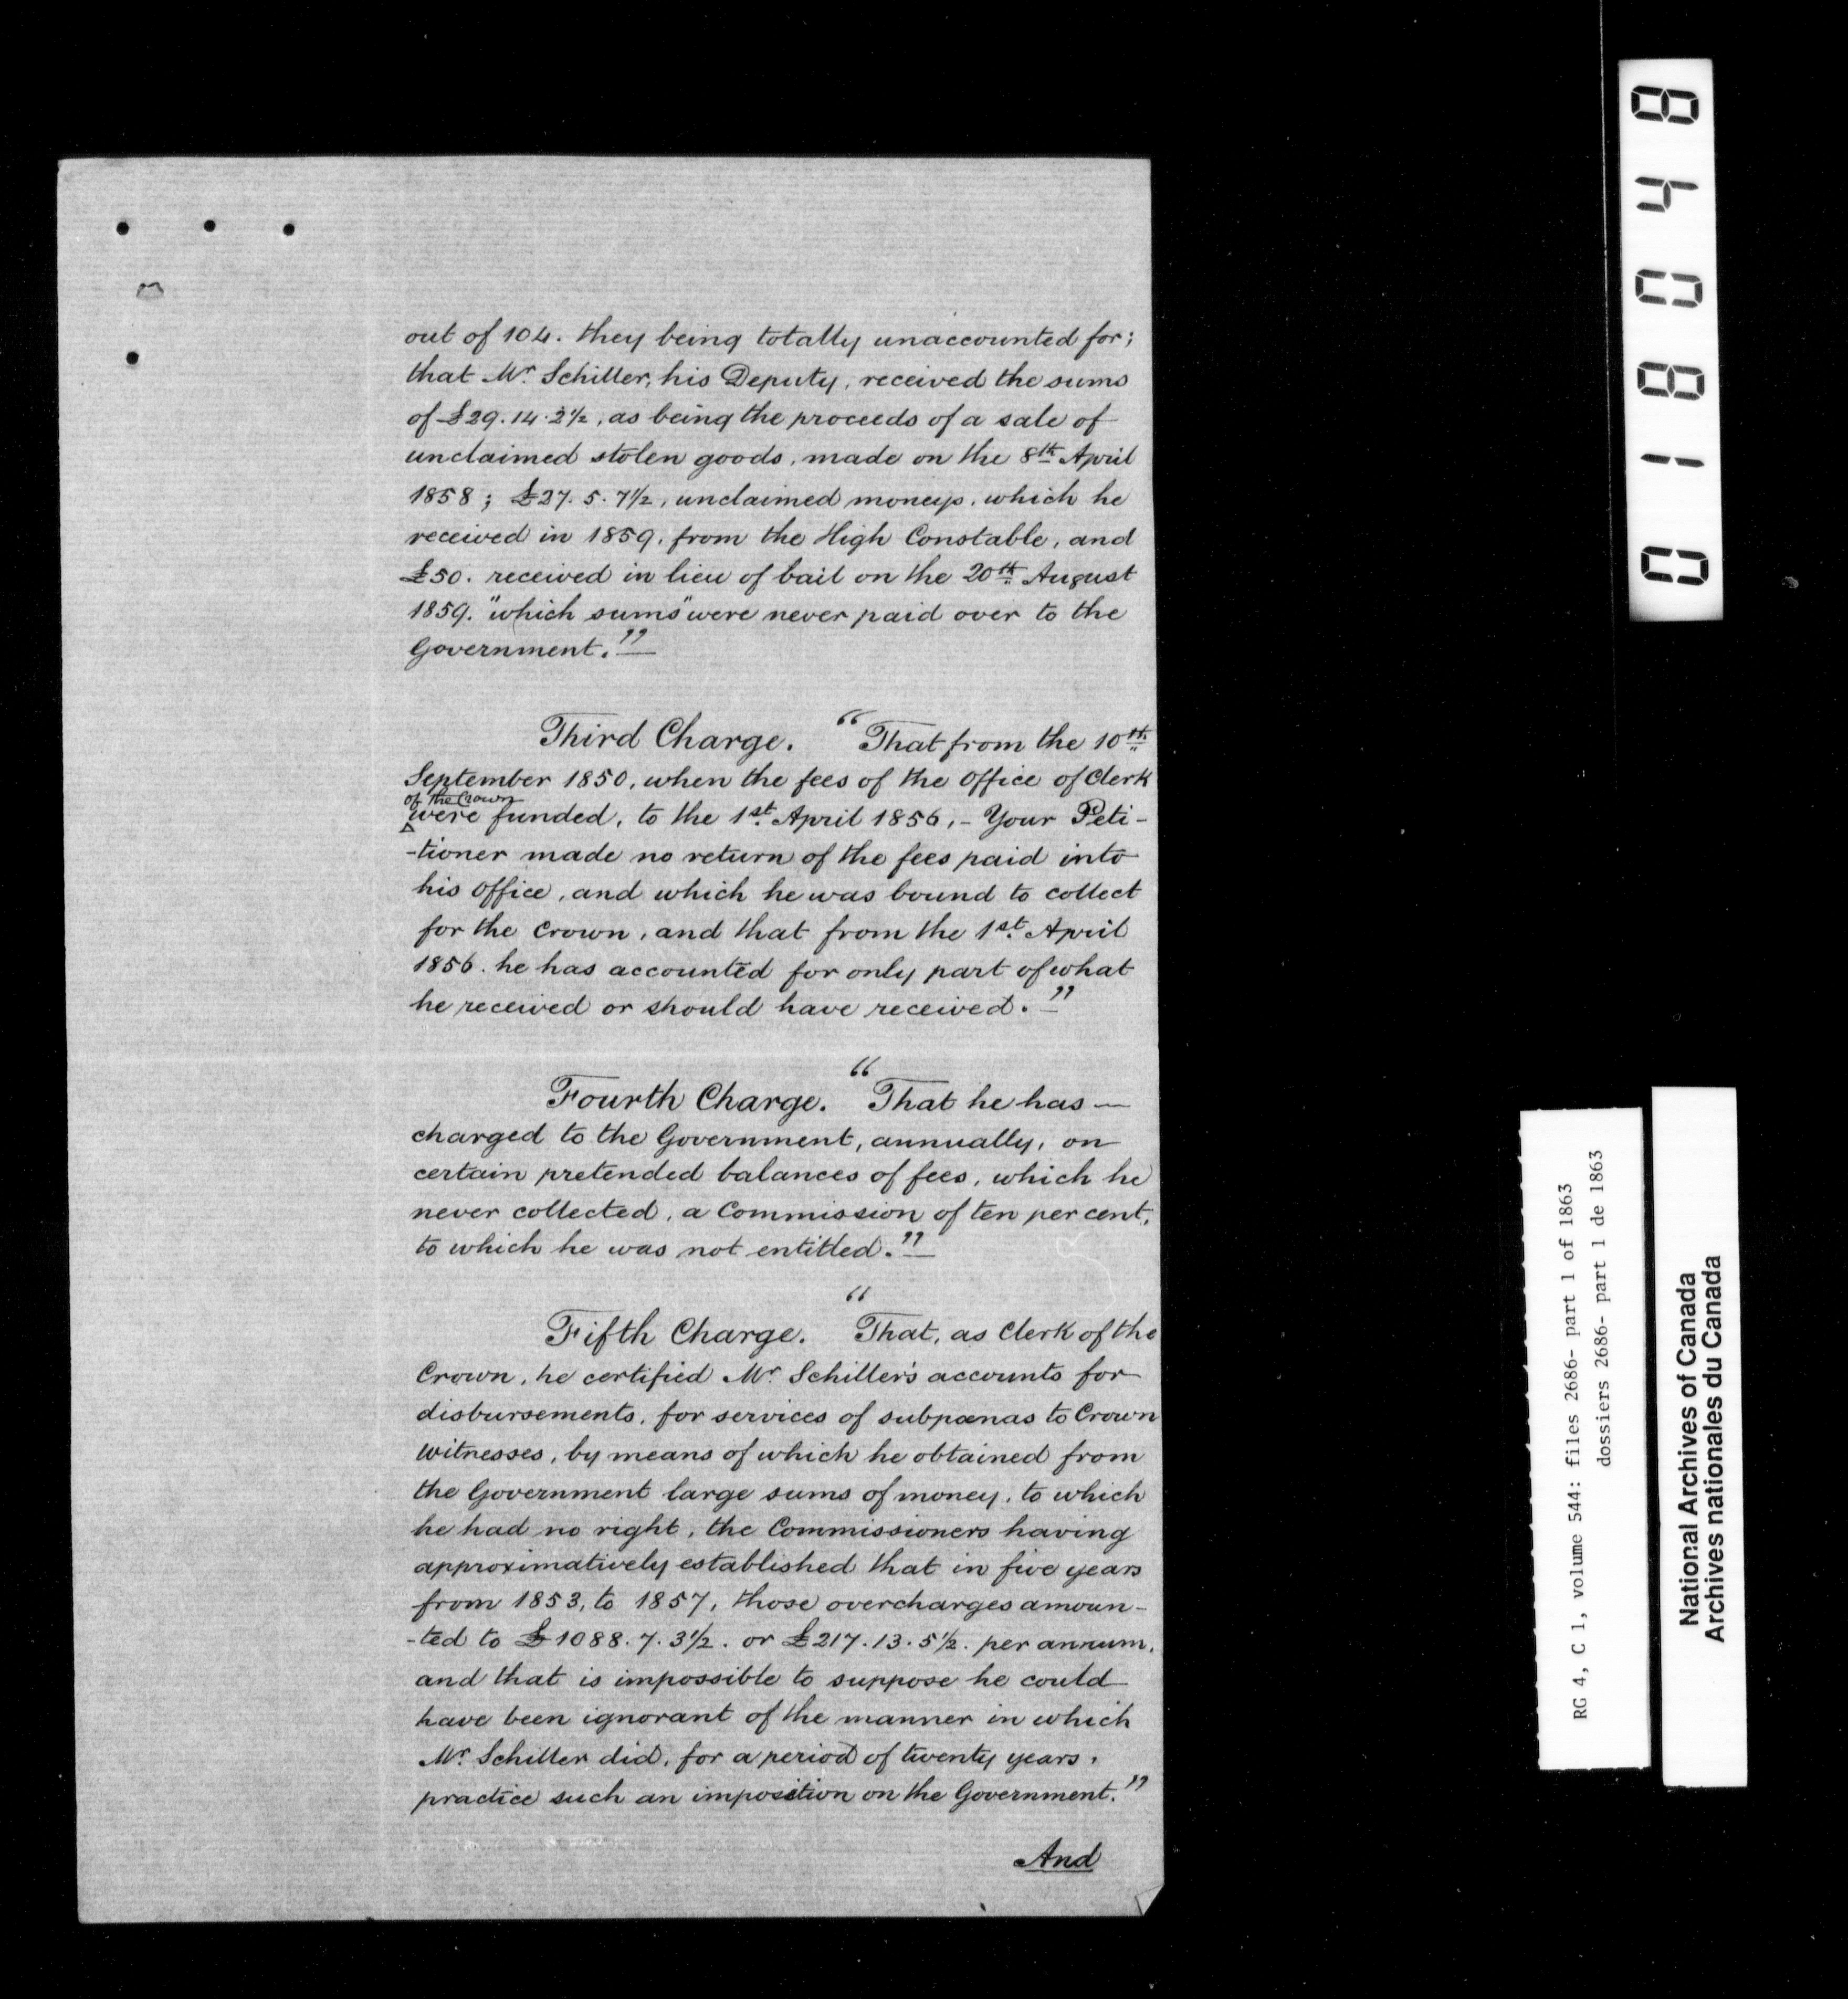 out of 104. they being totally unaccounted for;
that Mr. Schiller, his Deputy, received the sums
of £29.14.2½, as being the proceeds of a sale of
unclaimed stolen goods, made on the 8th April
1858; £27.5.7½, unclaimed moneys, which he
received in 1859, from the High Constable, and
£50. received in lieu of bail on the 20th August
1859. "which sums" were never paid over to the
Government."
Third Charge. "That from the 10th
September 1850, when the fees of the Office of Clerk
of the Crown
were funded, to the 1st April 1856,- Your Peti-
-tioner made no return of the fees paid into
his Office, and which he was bound to collect
for the Crown, and that from the 1st April
1856. he has accounted for only part of what
he received or should have received."
Fourth Charge. "That he has —
charged to the Government, annually, on
certain pretended balances of fees, which he
never collected, a Commission of ten per cent,
to which he was not entitled."
Fifth Charge. "That, as Clerk of the
Crown, he certified Mr. Schiller's accounts for
disbursements, for services of subpœnas to Crown
Witnesses, by means of which he obtained from
the Government large sums of money, to which
he had no right, the Commissioners having
approximatively established that in five years
from 1853, to 1857, those overcharges amoun-
-ted to £1088.7.3½. or £217.13.5½. per annum,
and that is impossible to suppose he could
have been ignorant of the manner in which
Mr. Schiller did, for a period of twenty years,
practice such an imposition on the Government."
And
018048
RG 4, C 1, volume 544: files 2686- part 1 of 1863
dossiers 2686- part 1 de 1863
National Archives of Canada
Archives nationales du Canada